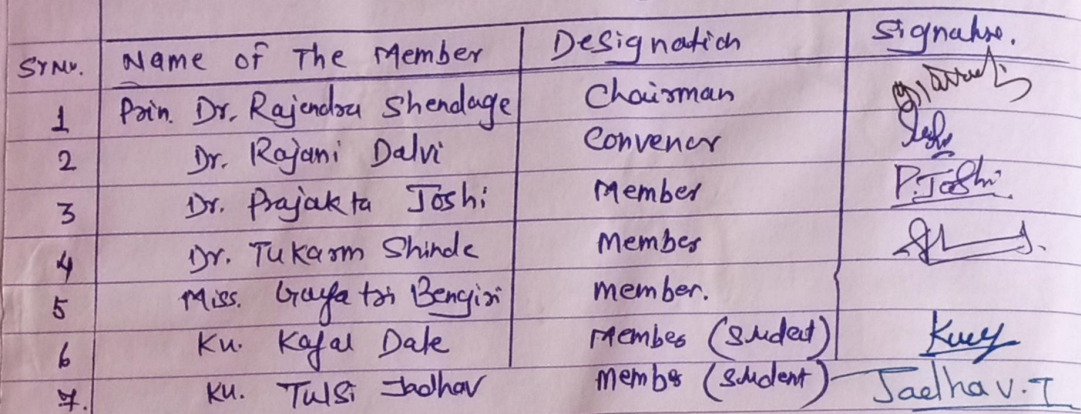 Sr No. Name of The Member Designation Signature.
1 Prin. Dr. Rajendra Shendage Chairman
2 Dr. Rajani Dalvi Convenor
3 Dr. Prajakta Joshi Member P. Joshi
4 Dr. Tukarm Shinde Member
5 Miss. Gayatri Bengiri member.
6 Ku. Kajal Date Member (Student)
7. Ku. Tulsi Jadhav Member (Student) Jadhav. T